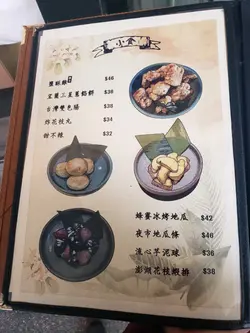 小食
鹽酥雞 $46
宜蘭三星蔥餡餅 $36
台灣雙色腸 $38
炸花枝丸 $34
甜不辣 $32
蜂蜜冰烤地瓜 $42
夜市地瓜條 $46
流心芋泥球 $36
澎湖花枝蝦排 $38